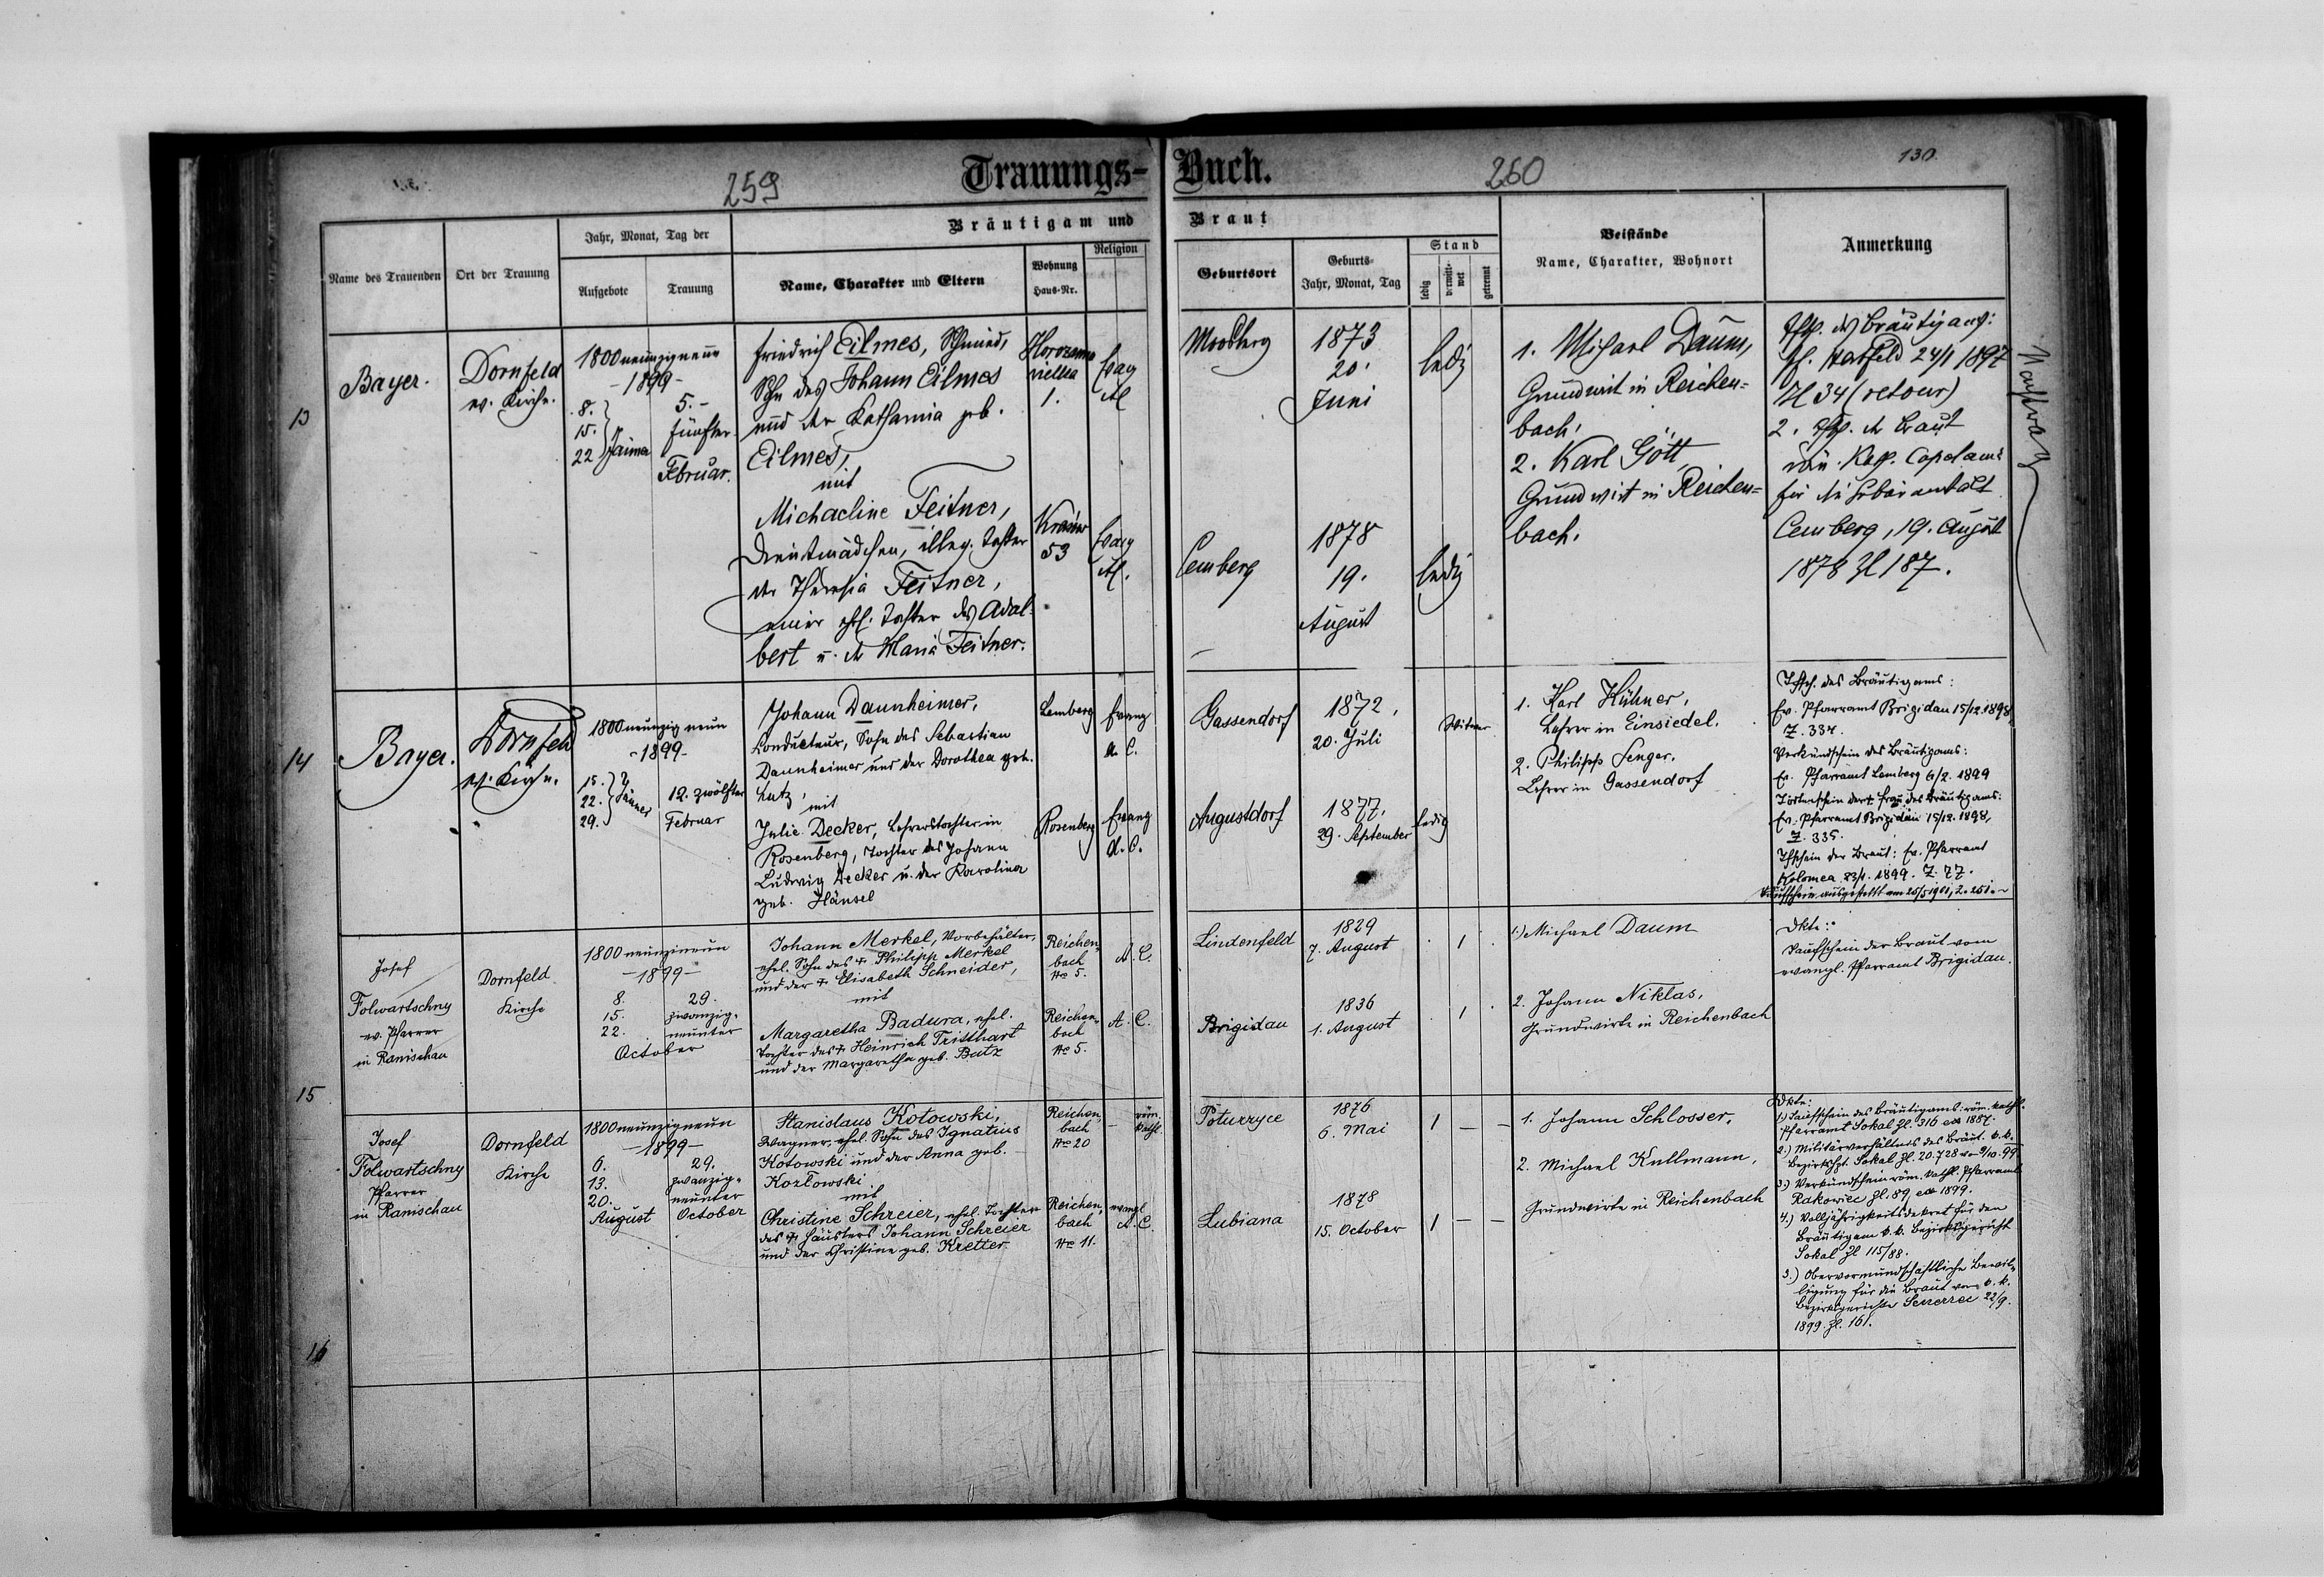 259
Trauungs-Buch.
260
130.
Bräutigam und Braut
Name des Trauenden
Ort der Trauung
Jahr, Monat, Tag der
Aufgebote
Trauung
Name, Charakter und Eltern
Wohnung
Haus-Nr.
Religion
Geburtsort
Geburts-
Jahr, Monat, Tag
Stand
ledig
verwitt-
wet
getrennt
Beistände
Name, Charakter, Wohnort
Anmerkung
13
Bayer.
Dornfeld
ev. Kirche.
1800neunzigneun
-1899-
8.
15.
22
5.-
fünfter
Februar.
Friedrich Eilmes, Schmied,
Sohn des Johann Eilmes
und der Katharina geb.
Eilmes,
mit
Michaeline Feitner,
Dienstmädchen, illeg. Tochter
der Theresia Feitner,
einer ehl. Tochter des Adal-
bert u. der Maria Feitner.
1.
Evag
AC
53
Evag
AC.
1873
20.
Juni
ledig
Lemberg
1878
19.
August
ledig
1. Michael Daum,
Grundwirt in Reichen-
bach.
2. Karl Gött
Grundwirt in Reichen-
bach.
Tfsch. des Bräutigams:
24/1 1897
Zl 34 (retour)
2. Tfsch. der Braut
röm. Kath.
für die Gebäranstalt
Lemberg, 19. August
1878 Zl 187.
14
Bayer.
Dornfeld
ev. Kirche.
1800neunzig neun
-1899-
15.
22. Jänner
29.
12. zwölfter
Februar
Johann Dannheimer,
Conducteur, Sohn des Sebastian
Dannheimer und der Dorothea geb.
Lutz,
mit
Julie Decker, Lehrerstochter in
Rosenberg, Tochter des Johann
Ludwig Decker u. der Karolina
geb. Hänsel
Lemberg
Evang
A. C.
Rosenberg
Evang
A. C.
Gassendorf
1872,
20. Juli
Witwer
Augustdorf
1877,
29. September
ledig
1. Karl Hühner,
Lehrer in Einsiedel.
2. Philipp Senger,
Lehrer in Gassendorf
Tfsch. des Bräutigams:
Ev. Pfarramt Brigidau 15/12.1898
Z. 334.
Verkündschein des Bräutigams:
Ev. Pfarramt Lemberg 6/2. 1899
Totenschein der † Frau des Bräutigams:
Ev. Pfarramt Brigidau 15/12. 1898,
Z. 335.
Tfschein der Braut: Ev. Pfarramt
Kolomea 23/1. 1899. Z. 77.
ausgestellt am 25/5 1901, Z. 251.
15
Josef
Folwartschny
ev. Pfarrer
in Ranischau
Dornfeld
Kirche
1800 neunzigneun
-1899-
8.
15.
22.
29.
zwanzig-
neunter
October
Johann Merkel, Vorbehälter,
ehel. Sohn des † Philipp Merkel
und der † Elisabeth Schneider,
mit
Margaretha Badura, ehel.
Tochter des † Heinrich Tritthart
und der Margaretha geb. Butz
Reichen-
bach
No 5.
A. C.
Reichen-
bach
No 5.
A. C.
Lindenfeld
1829
7. August
1
Brigidau
1836
1. August
1
1.) Michael Daum
2. Johann Niklas,
Grundwirte in Reichenbach
Dkte:
Taufschein der Braut vom
evangl. Pfarramt Brigidau.
16
Josef
Folwartschny
Pfarrer
in Ranischau
Dornfeld
Kirche
1800neunzigneun
-1899-
6.
13.
20.
August
29.
zwanzig-
neunter
October
Stanislaus Kotowski,
Wagner, ehel. Sohn des Ignatius
Kotowski und der Anna geb.
Kozłowski
mit
Christine Schreier, ehel. Tochter
des † Häuslers Johann Schreier
und der Christine geb. Kretter
Reichen-
bach
No 20
röm.
kath.
Reichen-
bach
No 11.
evangl
A. C.
Poturzyce
1876
6. Mai
1
Lubiana
1878
15. October
1
1. Johann Schlosser,
2. Michael Kullmann,
Grundwirte in Reichenbach
Dkte:
1.) Taufschein des Bräutigams: röm. kathl.
Pfarramt Sokal Zl. 316 ex 1887.
2.) Militärverhältnis des Bräut. k. k.
Bezirkshpt. Sokal Zl. 20.728 v. 9/10. 99
3.) Verkündschein röm. kathl. Pfarramt
Rakowiec Zl. 89 ex 1899.
4.) Volljährigkeitsdekret für den
Bräutigam k. k. Bezirksgericht
Sokal Zl 115/88.
5.) Obervormundschaftliche Bewil-
ligung für die Braut vom k. k.
Bezirksgerichte Szczerzec 22/9.
1899. Zl. 161.